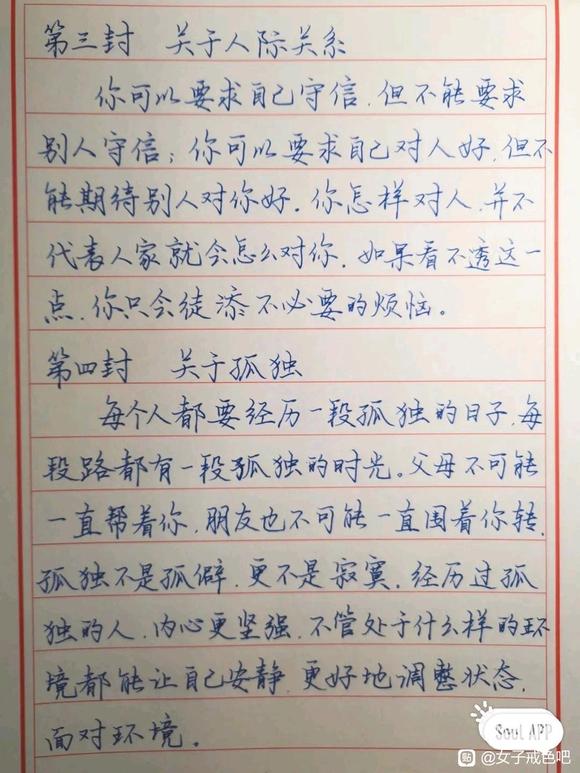 第三封 关于人际关系
你可以要求自己守信,但不能要求
别人守信;你可以要求自己对人好,但不
能期待别人对你好。你怎样对人,并不
代表人家就会怎么对你,如果看不透这一
点,你只会徒添不必要的烦恼。
第四封 关于孤独
每个人都要经历一段孤独的日子,每
段路都有一段孤独的时光。父母不可能
一直帮着你,朋友也不可能一直围着你转,
孤独不是孤僻,更不是寂寞,经历过孤
独的人,内心更坚强,不管处于什么样的环
境都能让自己安静,更好地调整状态,
面对环境。
Soul APP
贴 @女子戒色吧